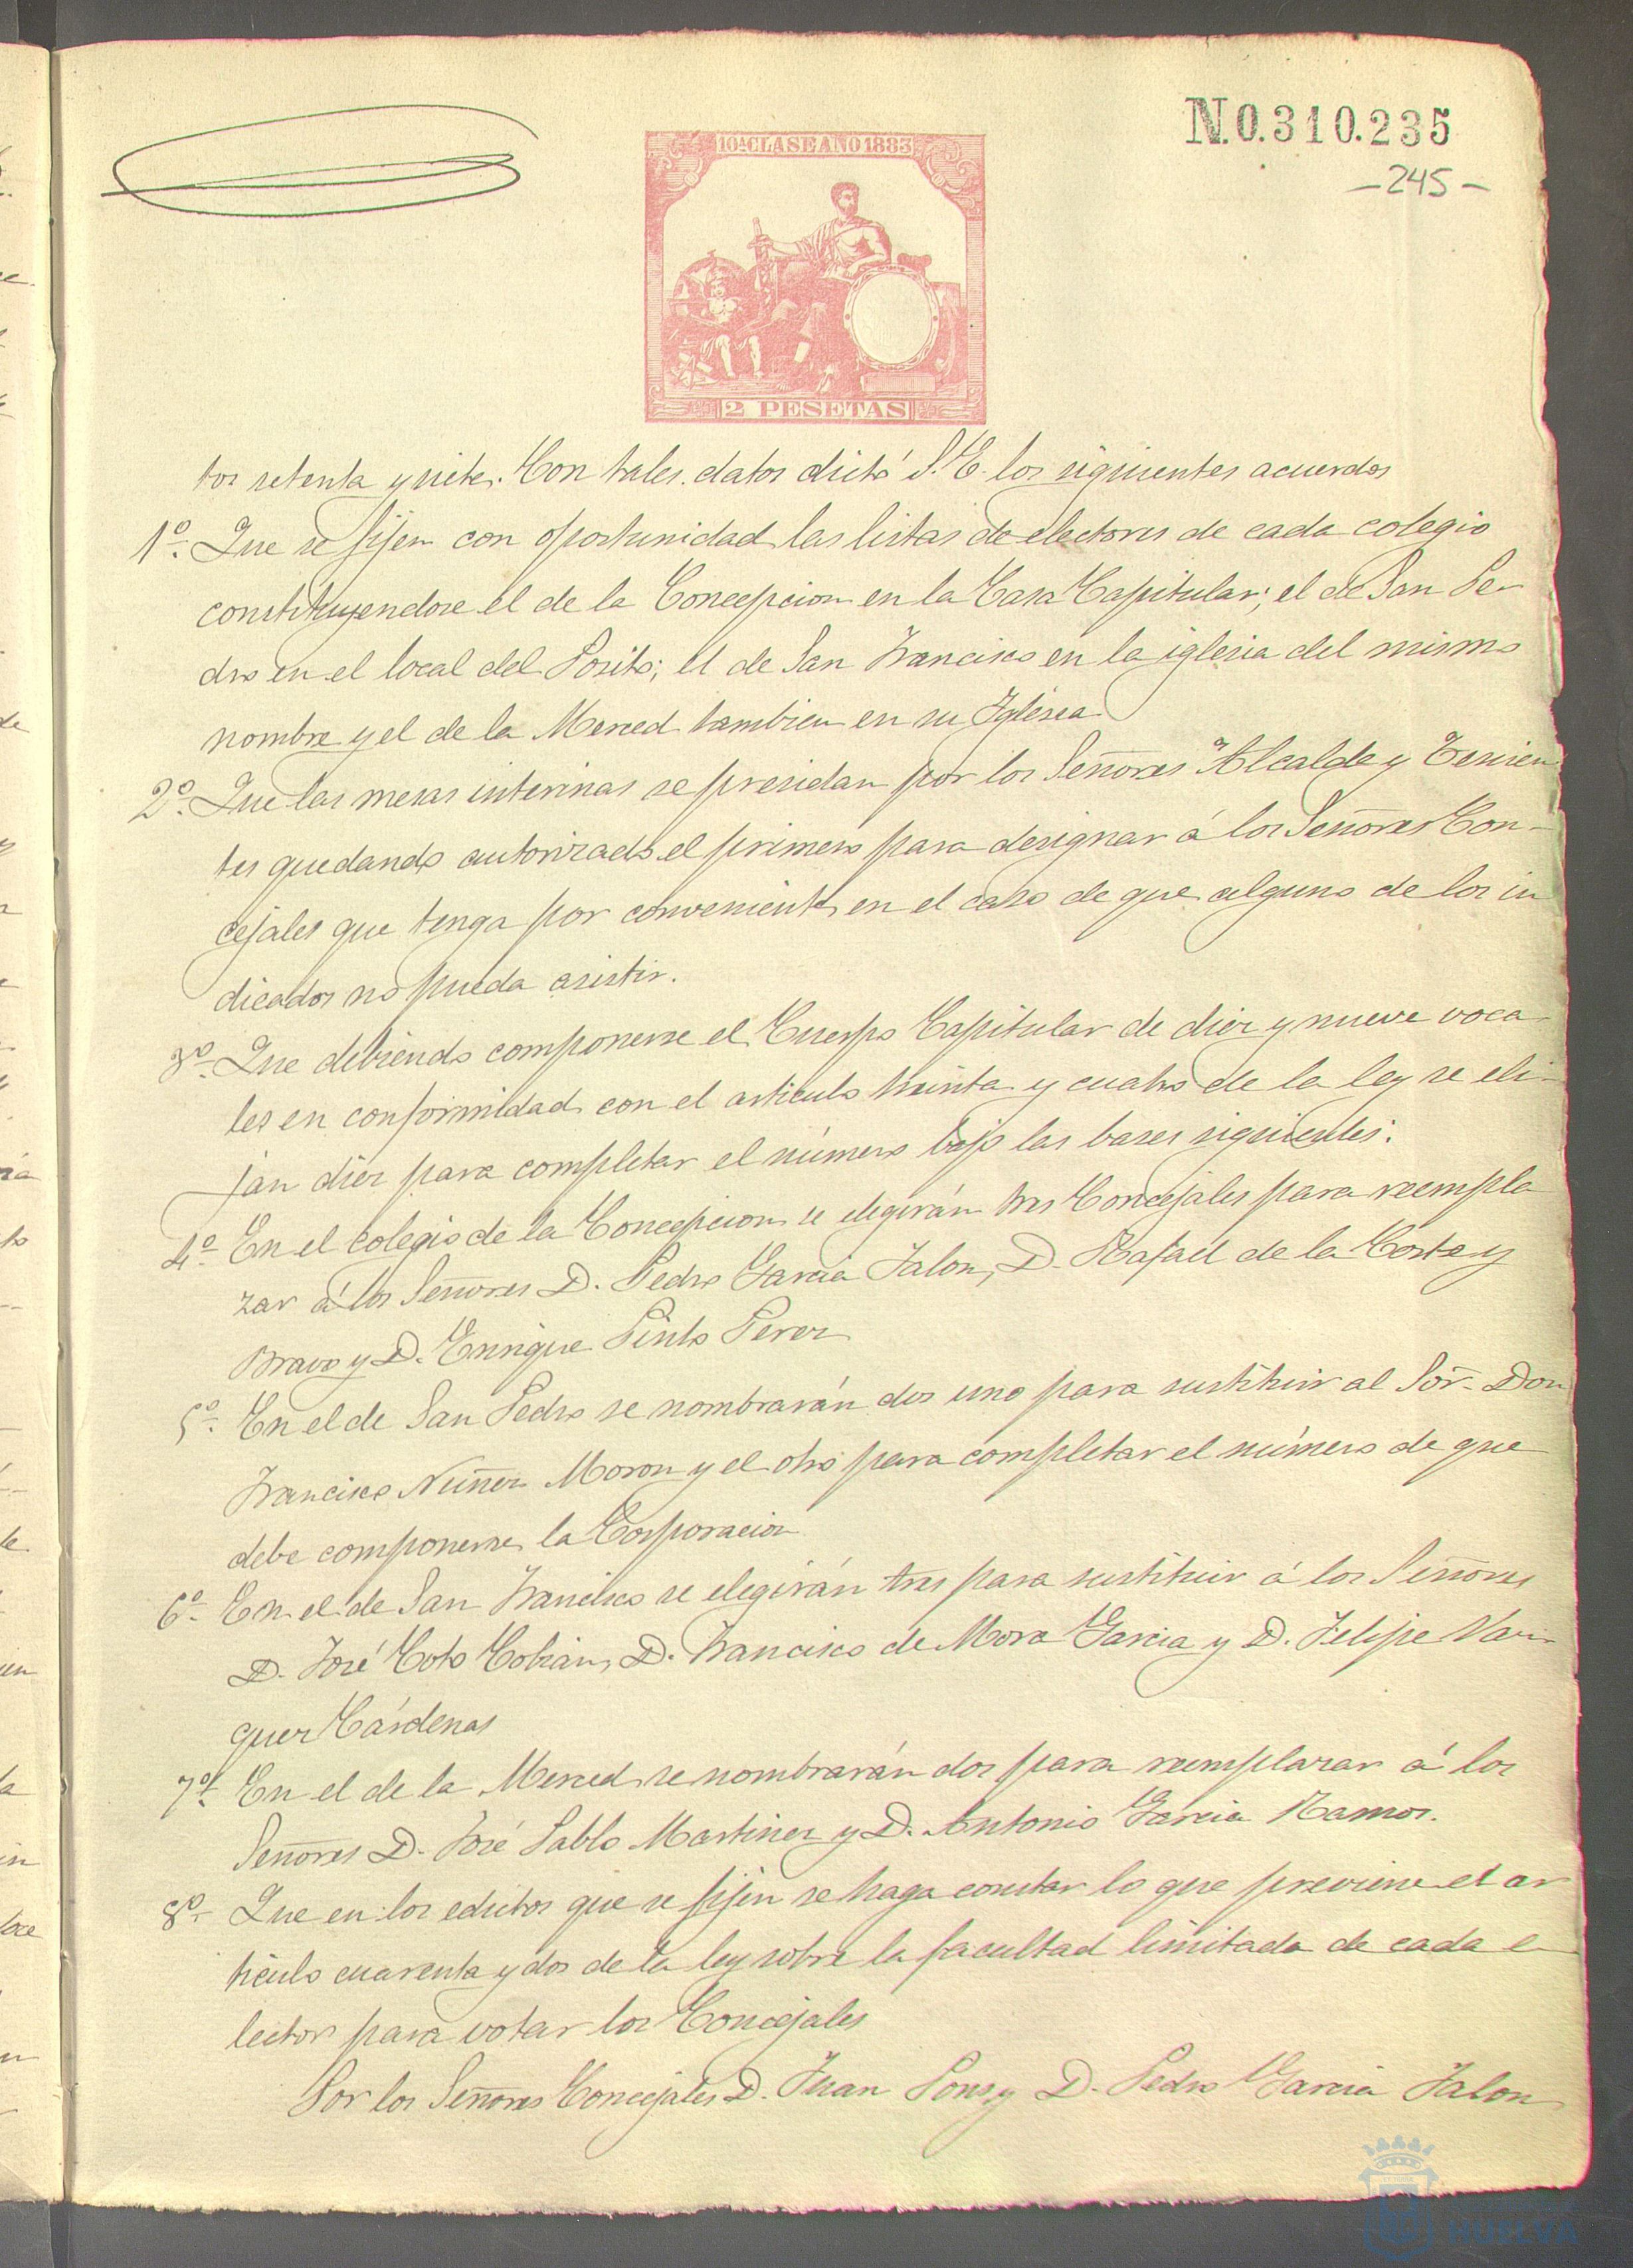 N.0.310.235
-245-
10ª CLASE AÑO 1883
2 PESETAS
tos setenta y siete. Con tales datos dictó S. E. los siguientes acuerdos
1º. Que se fijen con oportunidad las listas de electores de cada colegio
constituyendose el de la Concepcion en la Casa Capitular; el de San Pe-
dro en el local del Posito; el de San Francisco en la iglesia del mismo
nombre y el de la Merced tambien en su Iglesia
2º. Que las mesas interinas se presidan por los Señores Alcalde y Tenien
tes quedando autorizado el primero para designar á los Señores Con-
cejales que tenga por conveniente en el caso de que alguno de los in
dicados no pueda asistir.
3º. Que debiendo componerse el Cuerpo Capitular de diez y nueve voca
les en conformidad con el articulo treinta y cuatro de la ley se eli-
jan diez para completar el número bajo las bases siguientes:
4º. En el colegio de la Concepcion se elegirán tres Concejales para reempla
zar á los Señores D. Pedro Garcia Jalon, D. Rafael de la Corte y
Bravo y D. Enrique Pinto Perez
5º. En el de San Pedro se nombrarán dos uno para sustituir al Sor. Don
Francisco Nuñez Moron y el otro para completar el número de que
debe componerse la Corporacion
6º. En el de San Francisco se elegirán tres para sustituir á los Señores
D. José Coto Cobian, D. Francisco de Mora Garcia y D. Felipe Vaz-
quez Cárdenas
7º. En el de la Merced se nombrarán dos para reemplazar á los
Señores D. José Pablo Martinez y D. Antonio Garcia Ramos.
8º. Que en los edictos que se fijen se haga constar lo que previene el ar
ticulo cuarenta y dos de la ley sobre la facultad limitada de cada e
lector para votar los Concejales
Por los Señores Concejales D. Juan Pons y D. Pedro Garcia Jalon
HUELVA